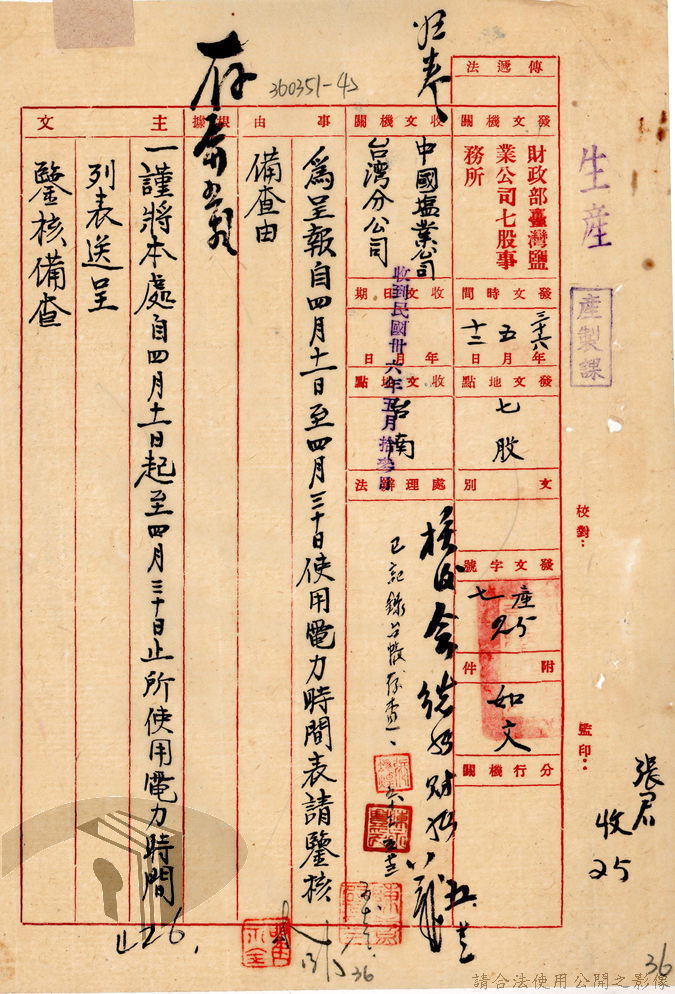 歸卷
360351-4
存
傳遞法
發文機關
財政部臺灣鹽
業公司七股事
務所
收文機關
中國塩業公司
台湾分公司
事由
為呈報自四月十一日至四月三十日使用電力時間表請鑒核
備查由
根據
主文
一謹將本處自四月十一日起至四月三十日止所使用電力時間
列表送呈
鑒核備查
發文時間
三十六年
五月
十二日
收文日期
年月日
收到民國卅六年五月拾叁日
發文地點
七股
收文地點
台南
文別
處理辦法
已記錄
存查
發文字號
產
七
25
附件
如文
分行機關
生產
產製課
校對:
監印:
張君
收
25
426.
36
36
請合法使用公開之影像